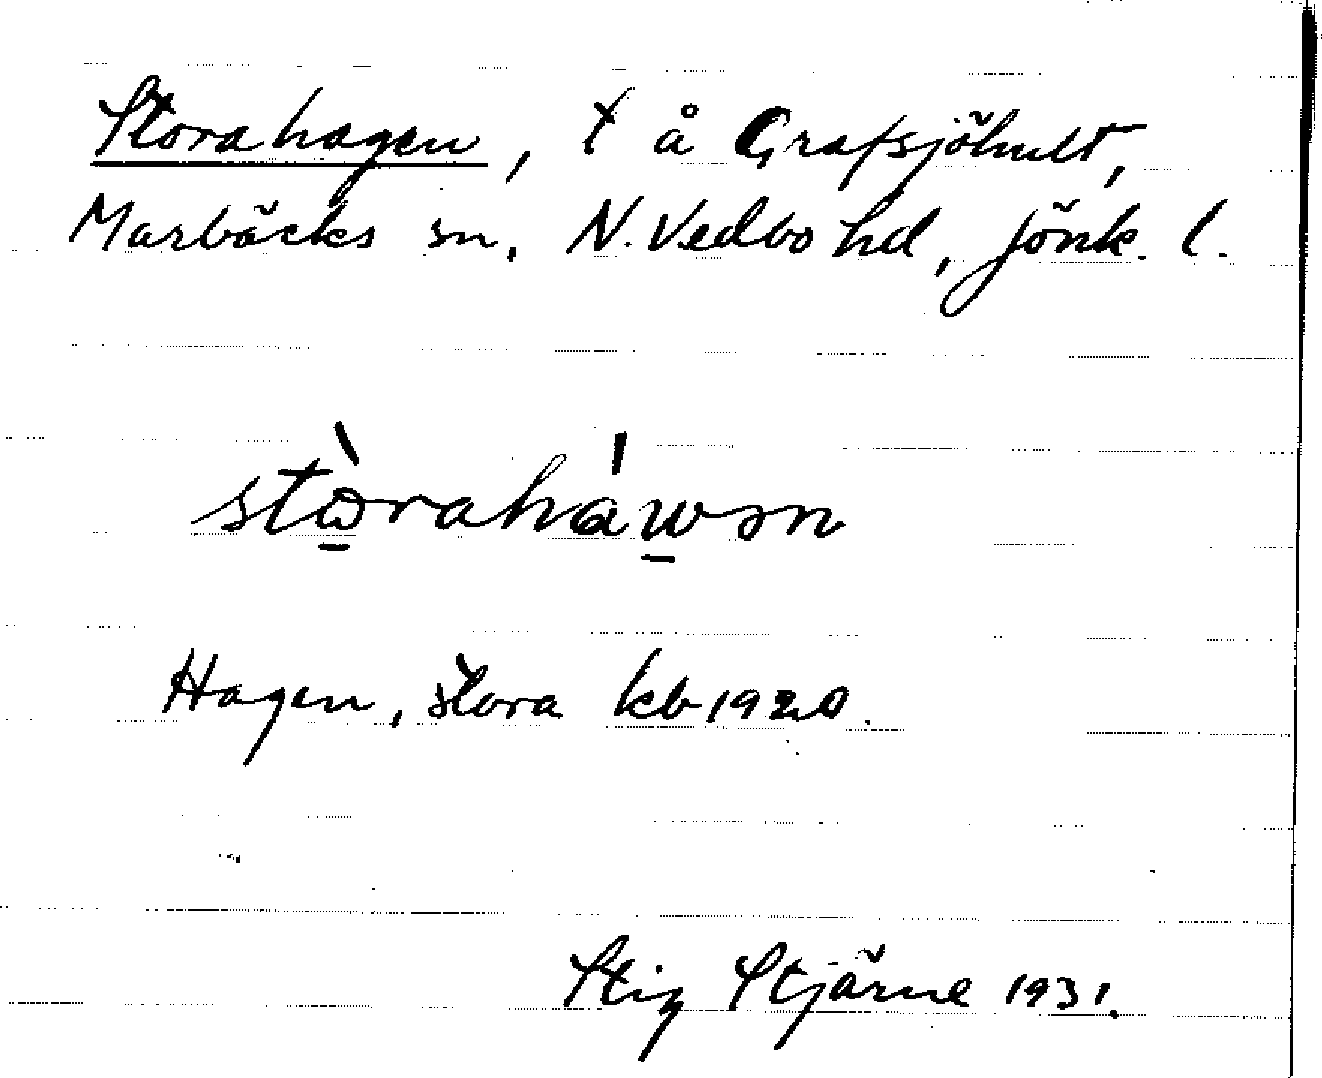 Storahagen, t å Grafsjöhult,
Marbäcks sn, N. Vedbo hd, Jönk. l.
stòraháwən
Hagen, stora kb 1920.
Stig Stjärne 1931.